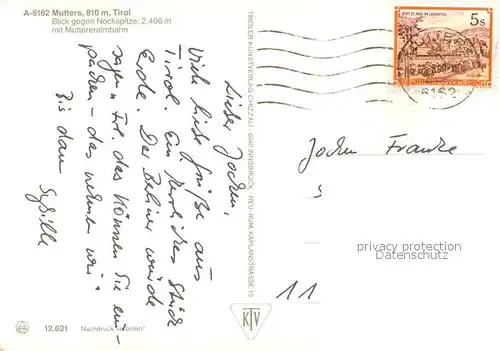 A-6162 Mutters, 810 m, Tirol
Blick gegen Nockspitze, 2.406 m
mit Muttereralmbahn
Lieber Jochen,
viele liebe Grüße aus
Tirol. Ein herrliches Stück
Erde. Der Berliner würde
sagen „Frl. das können Sie ein-
packen - das nehmen wir"
Bis dann
Sybille
12.621
Nachdruck verboten!
TIROLER KUNSTVERLAG CHIZZALI · 6040 INNSBRUCK, NEU-RUM, KAPLANSTRASSE 10
KTV
5s
STIFT ST. PAUL IM LAVANTTAL
REPUBLIK ÖSTERREICH
6162
Jochen Franke
11
privacy protection
Datenschutz